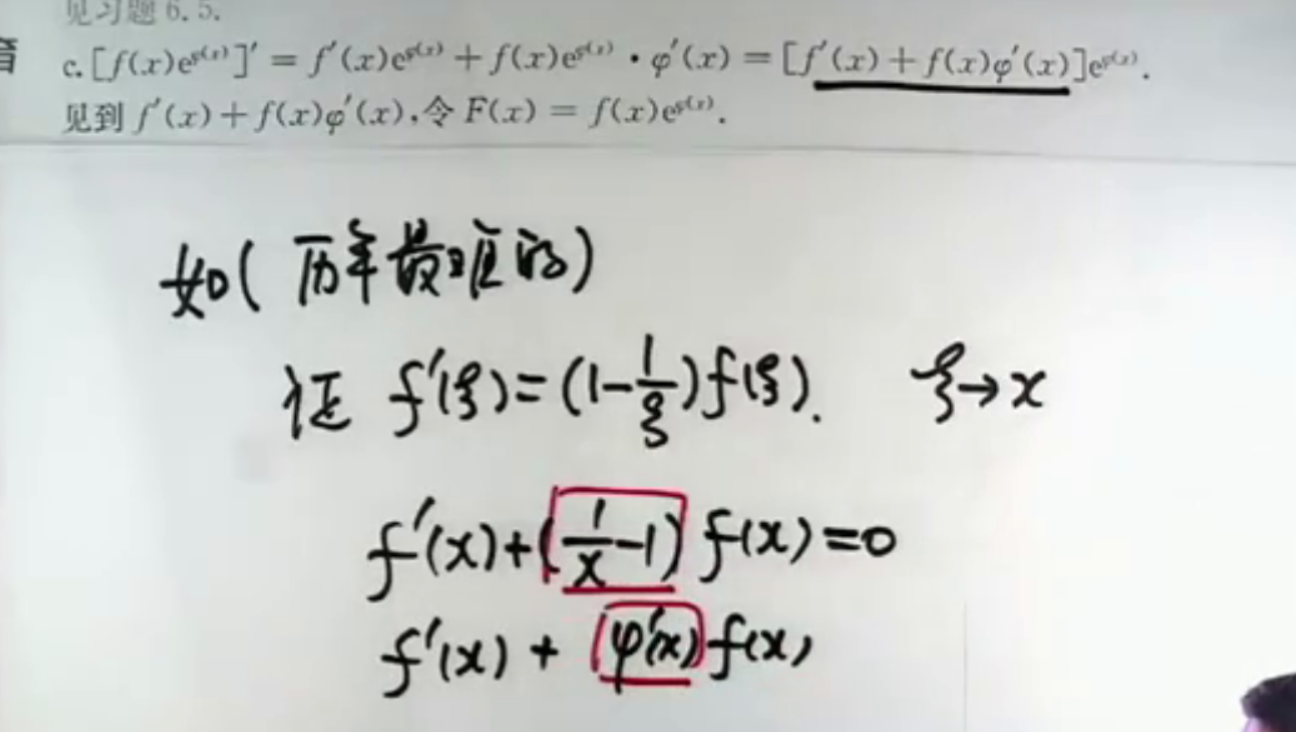 见习题 6.5.
育
c. [f(x)e^{φ(x)}]′ = f′(x)e^{φ(x)} + f(x)e^{φ(x)} · φ′(x) = [f′(x) + f(x)φ′(x)]e^{φ(x)}.
见到 f′(x) + f(x)φ′(x), 令 F(x) = f(x)e^{φ(x)}.
如(历年最难的)
证 f′(ξ) = (1 - 1/ξ) f(ξ). ξ → x
f′(x) + (1/x - 1) f(x) = 0
f′(x) + (φ′(x)) f(x)